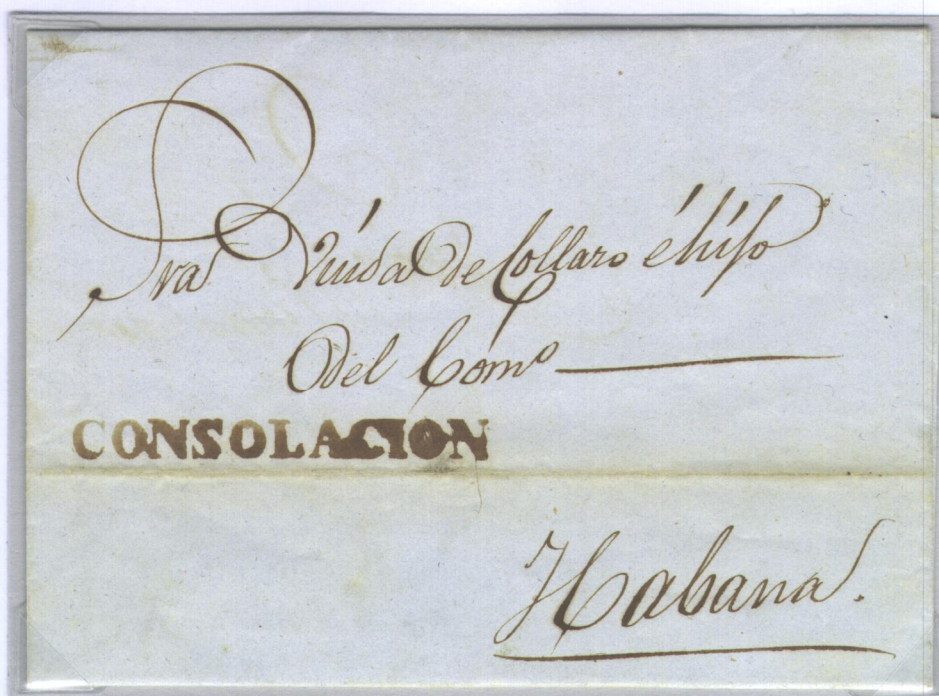 Sra Viuda de Collazo é hijo
del Como
CONSOLACION
Habana.